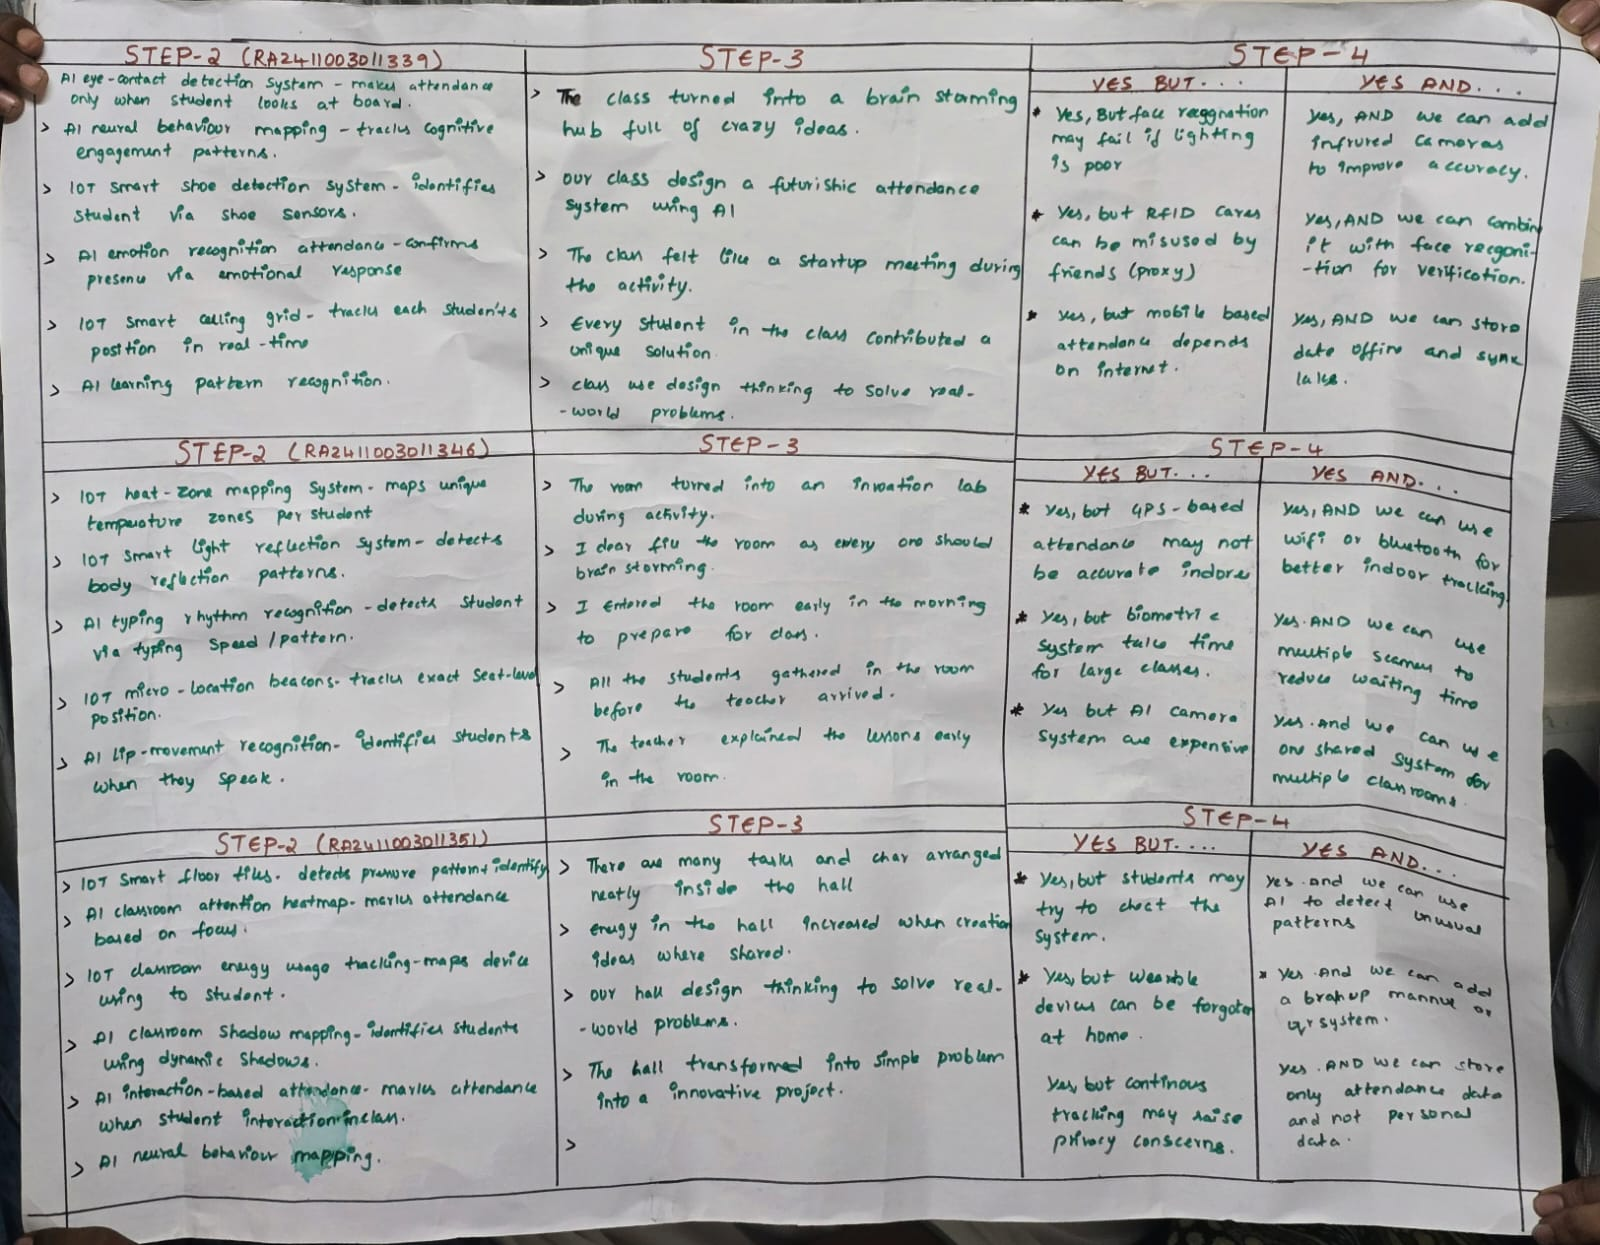 STEP-2 (RA2411003011339)
AI eye-contact detection system - makes attendance
only when student looks at board.
> AI neural behaviour mapping - tracks cognitive
engagement patterns.
> IOT smart shoe detection system - identifies
student via shoe sensors.
> AI emotion recognition attendance - confirms
presence via emotional response
> IOT smart ceiling grid - tracks each students
position in real-time
> AI learning pattern recognition.
STEP-3
> The class turned into a brain storming
hub full of crazy ideas.
> our class design a futurishic attendance
system using AI
> The class felt like a startup meeting during
the activity.
> Every student in the class contributed a
unique solution.
> class use design thinking to solve real-
-world problems.
STEP-4
YES BUT....
* Yes, But face recggnation
may fail if lighting
is poor
* Yes, but RFID cares
can be misused by
friends (proxy)
* Yes, but mobile based
attendance depends
on internet.
YES AND...
Yes, AND we can add
infrured cameras
to improve accuracy.
Yes, AND we can combin
it with face recgoni-
-tion for verification.
Yes, AND we can store
date offire and sync
STEP-2 (RA2411003011346)
> IOT heat-zone mapping system - maps unique
temperature zones per student
> IOT smart light reflection system - detects
body reflection patterns.
> AI typing rhythm recognition - detects student
via typing speed / pattern.
> IOT micro-location beacons - tracks exact seat-level
position.
> AI lip-movement recognition - identifies students
when they speak.
STEP-3
> The room turned into an invoation lab
during activity.
> I the room as every one should
brain storming.
> I Entered the room early in the morning
to prepare for class.
> All the students gathered in the room
before the teacher arrived.
> The teacher explained the lessons early
in the room.
STEP-4
YES BUT...
* Yes, but GPS-based
attendance may not
be accurate indore
* Yes, but biometric
system take time
for large classes.
* Yes but AI camera
system are expensive
YES AND...
Yes, AND we can use
wifi or bluetooth for
better indoor tracking
Yes. AND we can use
multiple scanners to
reduce waiting time
Yes. And we can use
one shared system for
multiple classrooms.
STEP-2 (RA2411003011351)
> IOT smart floor tiles. detects pressure pattern identify
> AI classroom attention heatmap - marks attendance
based on focus.
> IOT classroom energy usage tracking - maps device
using to student.
> AI classroom shadow mapping - identifies students
using dynamic shadows.
> AI interaction-based attendance - marks attendance
when student interaction in class.
> AI neural behaviour mapping.
STEP-3
> There are many tasks and char arranged
neatly inside the hall
> energy in the hall increased when creation
ideas where shared.
> our hall design thinking to solve real-
-world problems.
> The hall transformed into simple problem
into a innovative project.
>
STEP-4
YES BUT....
* Yes, but students may
try to cheat the
system.
* Yes, but wearble
devices can be forgoten
at home.
Yes, but continous
tracking may raise
privacy conscerns.
YES AND...
Yes. And we can use
AI to detect unusual
patterns
* Yes. And we can add
a or
system.
Yes. AND we can store
only attendance data
and not personal
data.